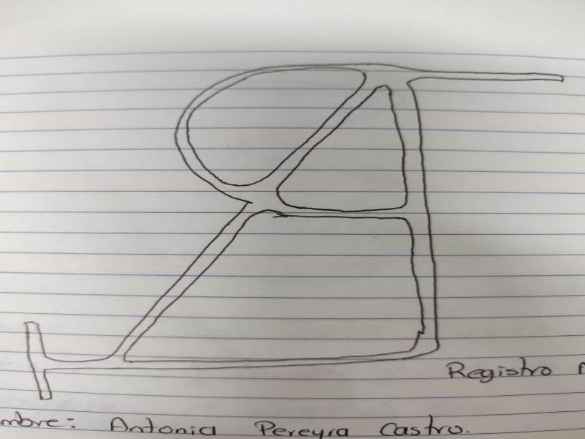 Registro
Antonia Pereyra Castro.